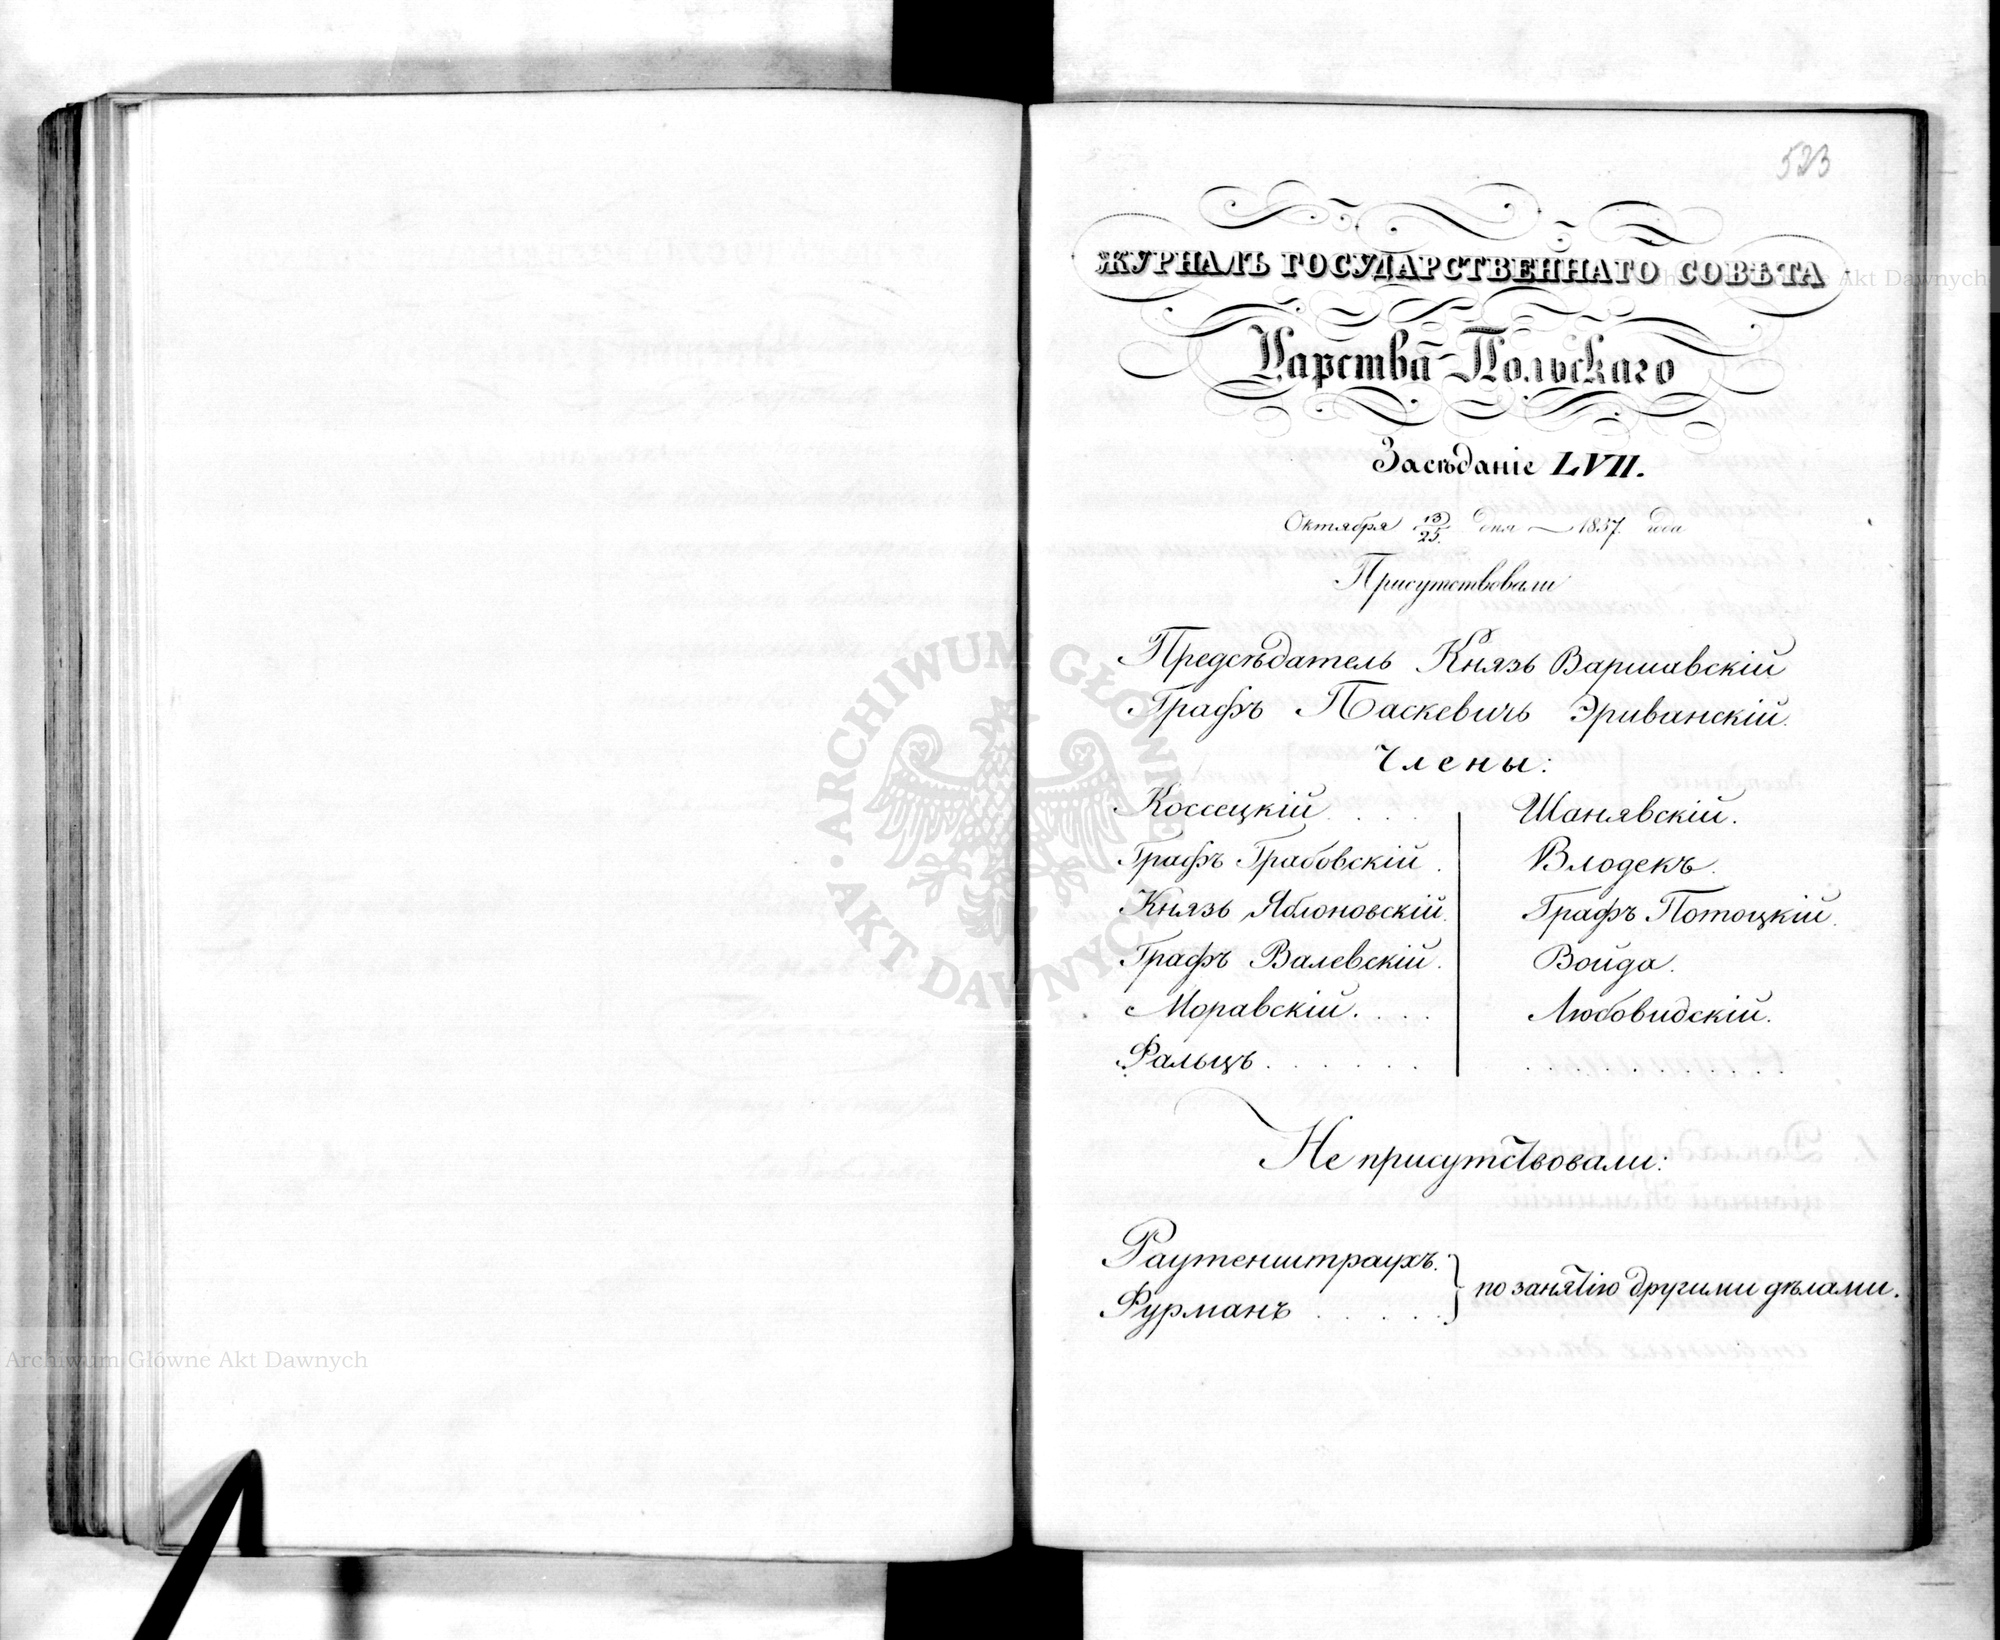 523
ЖУРНАЛЪ ГОСУДАРСТВЕННАГО СОВѢТА
Царства Польскаго
Засѣданіе LVII.
Октября 13/25. дня 1837. года
Присутствовали
Предсѣдатель Князь Варшавскій
Графъ Паскевичъ Эриванскій.
Члены:
Коссецкій . . . . Шанявскій.
Графъ Грабовскій . Влодекъ.
Князь Яблоновскій. Графъ Потоцкій.
Графъ Валевскій. Войда.
Моравскій. . . . Любовидскій.
Фальцъ . . . . . .
Не присутствовали:
Раутенштраухъ. } по занятію другими дѣлами.
Фурманъ . . . . .
ARCHIWUM GŁÓWNE AKT DAWNYCH
Archiwum Główne Akt Dawnych
Archiwum Główne Akt Dawnych